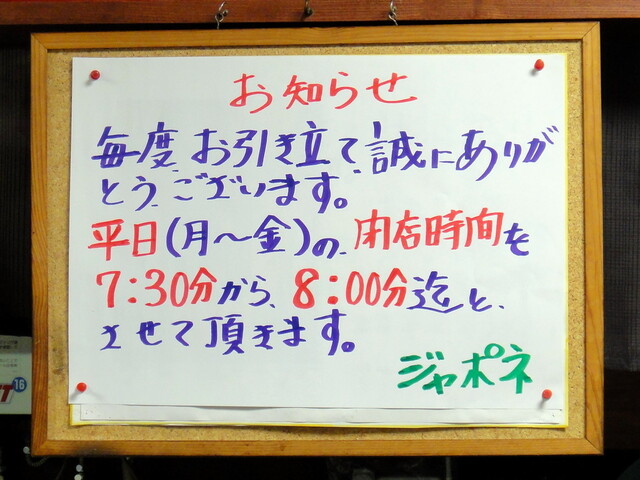 お知らせ
毎度、お引き立て、誠にありが
とう、ございます。
平日(月〜金)の、閉店時間を
7:30分から、8:00分迄と、
させて頂きます。
ジャポネ
16